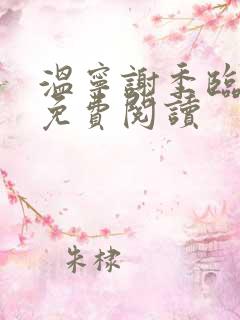 溫寧謝季臨
免費閱讀
朱棣